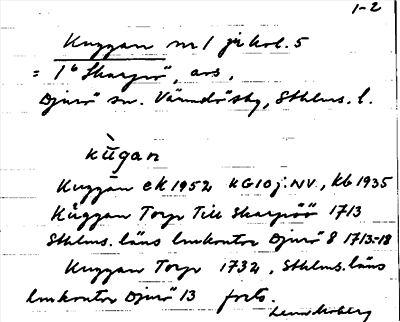 1-2
Kuggan nr 1 jr kol. 5
= 1⁶ Skarpö, ars,
Djurö sn. Värmdö sky, Sthlms. l.
kùgan
Kuggan ek 1952 KG10 j. NV., Kb 1935
Kuggan Torp Till Skarpöö 1713
Sthlms. läns lmkontor Djurö 8 1713-18
Kuggan Torp 1732, Sthlms. läns
lmkontor Djurö 13 forts.